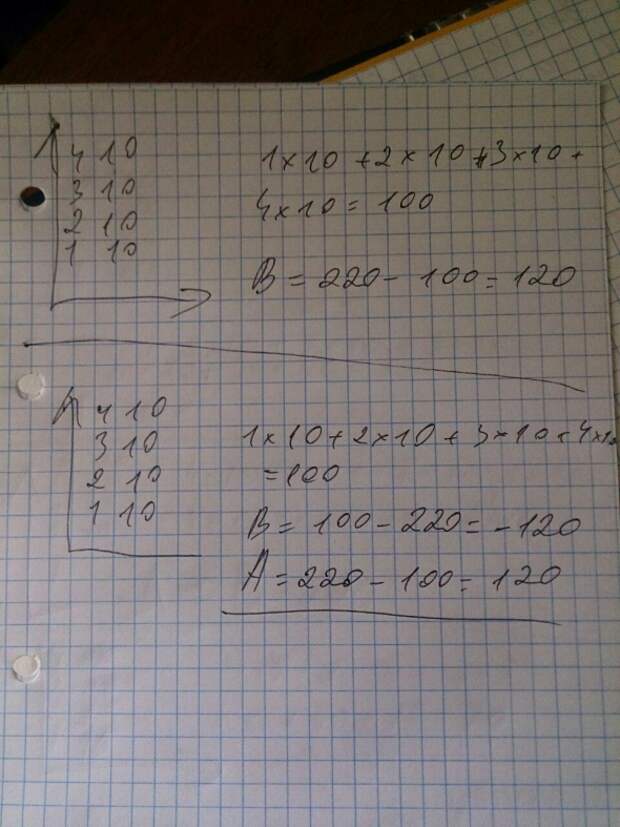 4 10
3 10
2 10
1 10
1×10+2×10+3×10+
4×10=100
B=220-100=120
4 10
3 10
2 10
1 10
1×10+2×10+3×10+4×10
=100
B=100-220=-120
A=220-100=120